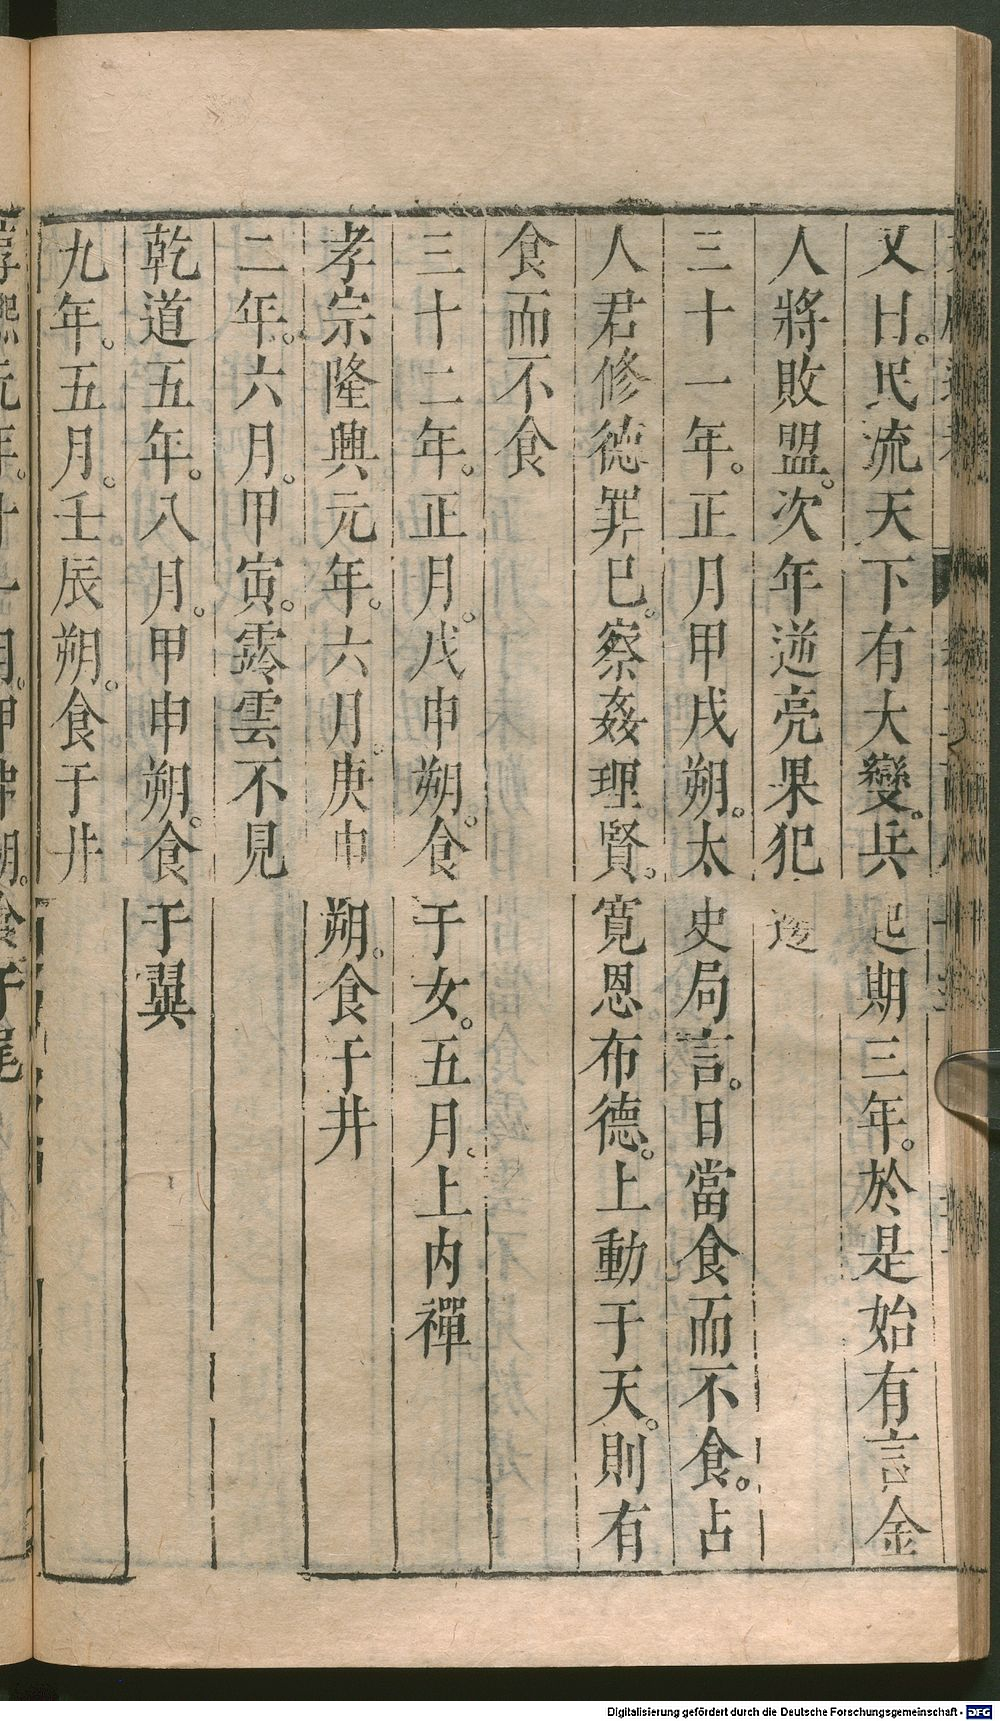 又曰。民流天下有大變。兵起期三年。於是始有言金
人將敗盟。次年逆亮果犯邊
三十一年。正月甲戌朔。太史局言。日當食而不食。占
人君修德罪已。察姦理賢。寬恩布德。上動于天。則有
食而不食
三十二年。正月。戊申朔。食于女。五月。上內禪
孝宗隆興元年。六月。庚申朔。食于井
二年。六月。甲寅。露雲不見
乾道五年。八月。甲申朔。食于翼
九年。五月。壬辰朔。食于井
淳熙元年。十一月。甲申朔。食于尾
Digitalisierung gefördert durch die Deutsche Forschungsgemeinschaft - DFG